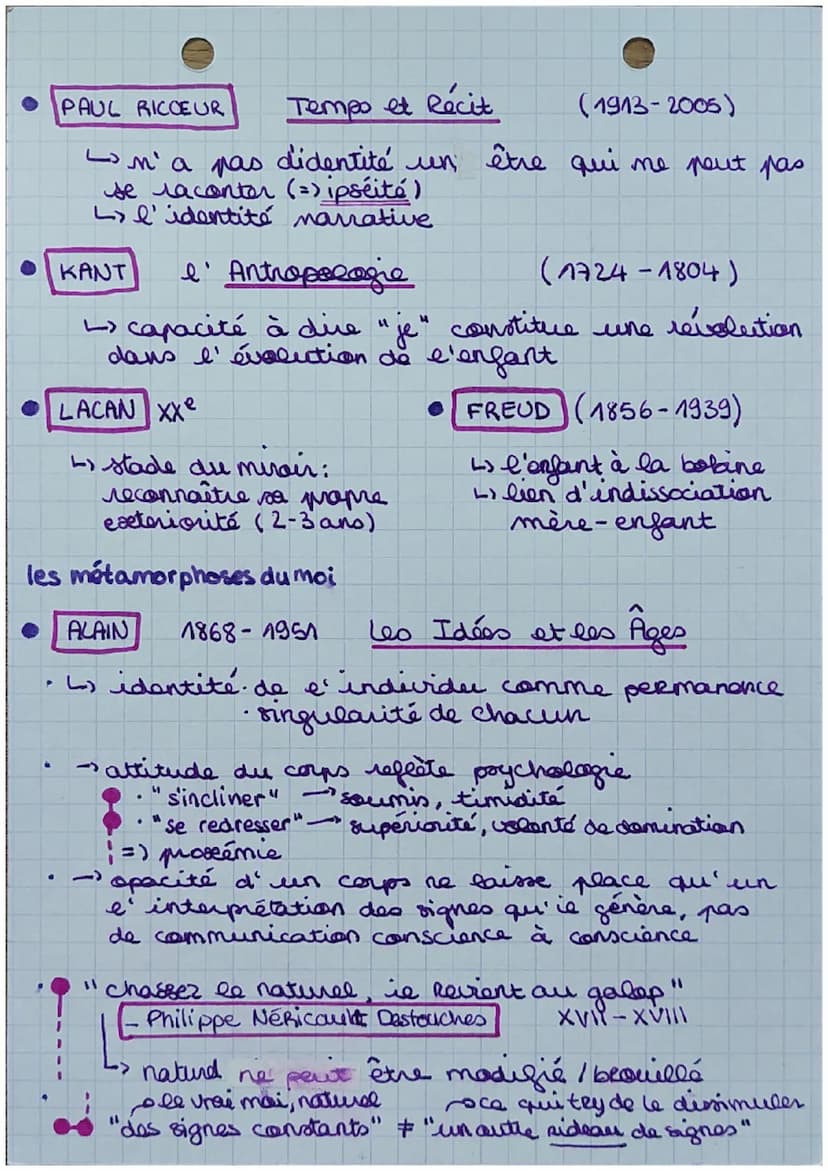 • PAUL RICŒUR Temps et Récit (1913-2005)
↳ n'a pas d'identité un être qui ne peut pas
se raconter (=> ipséité)
↳ l'identité narrative
• KANT l'Antropologie (1724-1804)
↳ capacité à dire "je" constitue une révolution
dans l'évolution de l'enfant
• LACAN XXe
↳ stade du miroir:
reconnaître sa propre
exteriorité (2-3 ans)
• FREUD (1856-1939)
↳ l'enfant à la bobine
↳ lien d'indissociation
mère-enfant
les métamorphoses du moi
• ALAIN 1868-1951 Les Idées et les Âges
· ↳ identité · de l'individu comme permanance
· singularité de chacun
· → attitude du corps reflète psychologie
· "s'incliner" → soumis, timidité
· "se redresser" → supériorité, volonté de domination
=> proxémie
· → opacité d'un corps ne laisse place qu'un
l'interprétation des signes qu'il génère, pas
de communication conscience à conscience
· "chassez le naturel, il revient au galop"
- Philippe NÉRicault Destouches XVII-XVIII
↳ naturel ne peut être modifié / brouillé
le vrai moi, naturel ce qui try de le dissimuler
"des signes constants" ≠ "un autre rideau de signes"